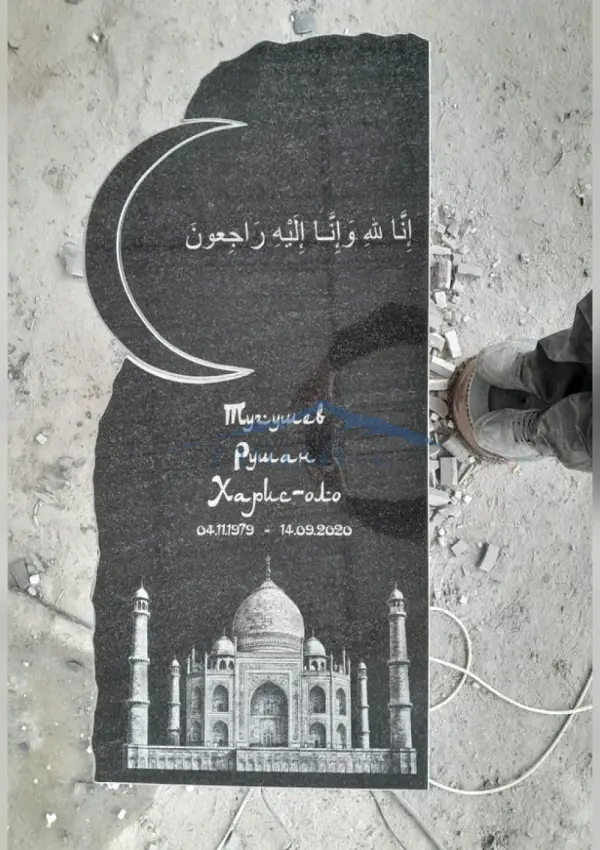 إِنَّا لِلَّهِ وَإِنَّـا إِلَيْهِ رَاجِعونَ
Тугушев
Рушан
Харис-оло
04.11.1979 - 14.09.2020